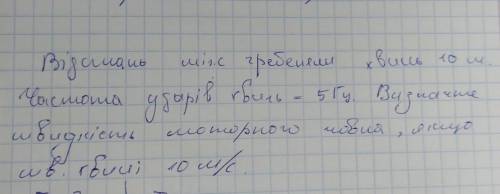 Відстань між гребенями хвиль 10 м.
Частота ударів хвиль - 5 Гц. Визначте
швидкість моторного човна, якщо
шв. хвилі 10 м/с.